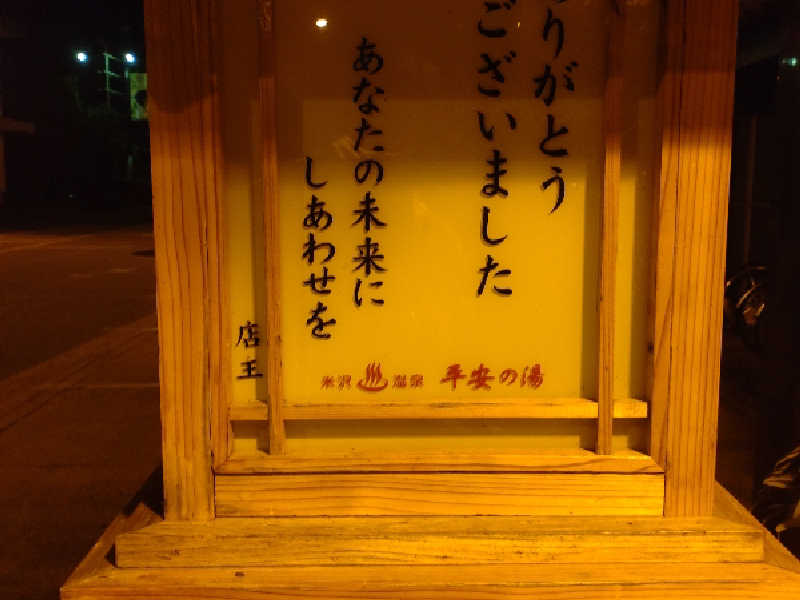 りがとう
ございました
あなたの未来に
しあわせを
店主
米沢 温泉 平安の湯